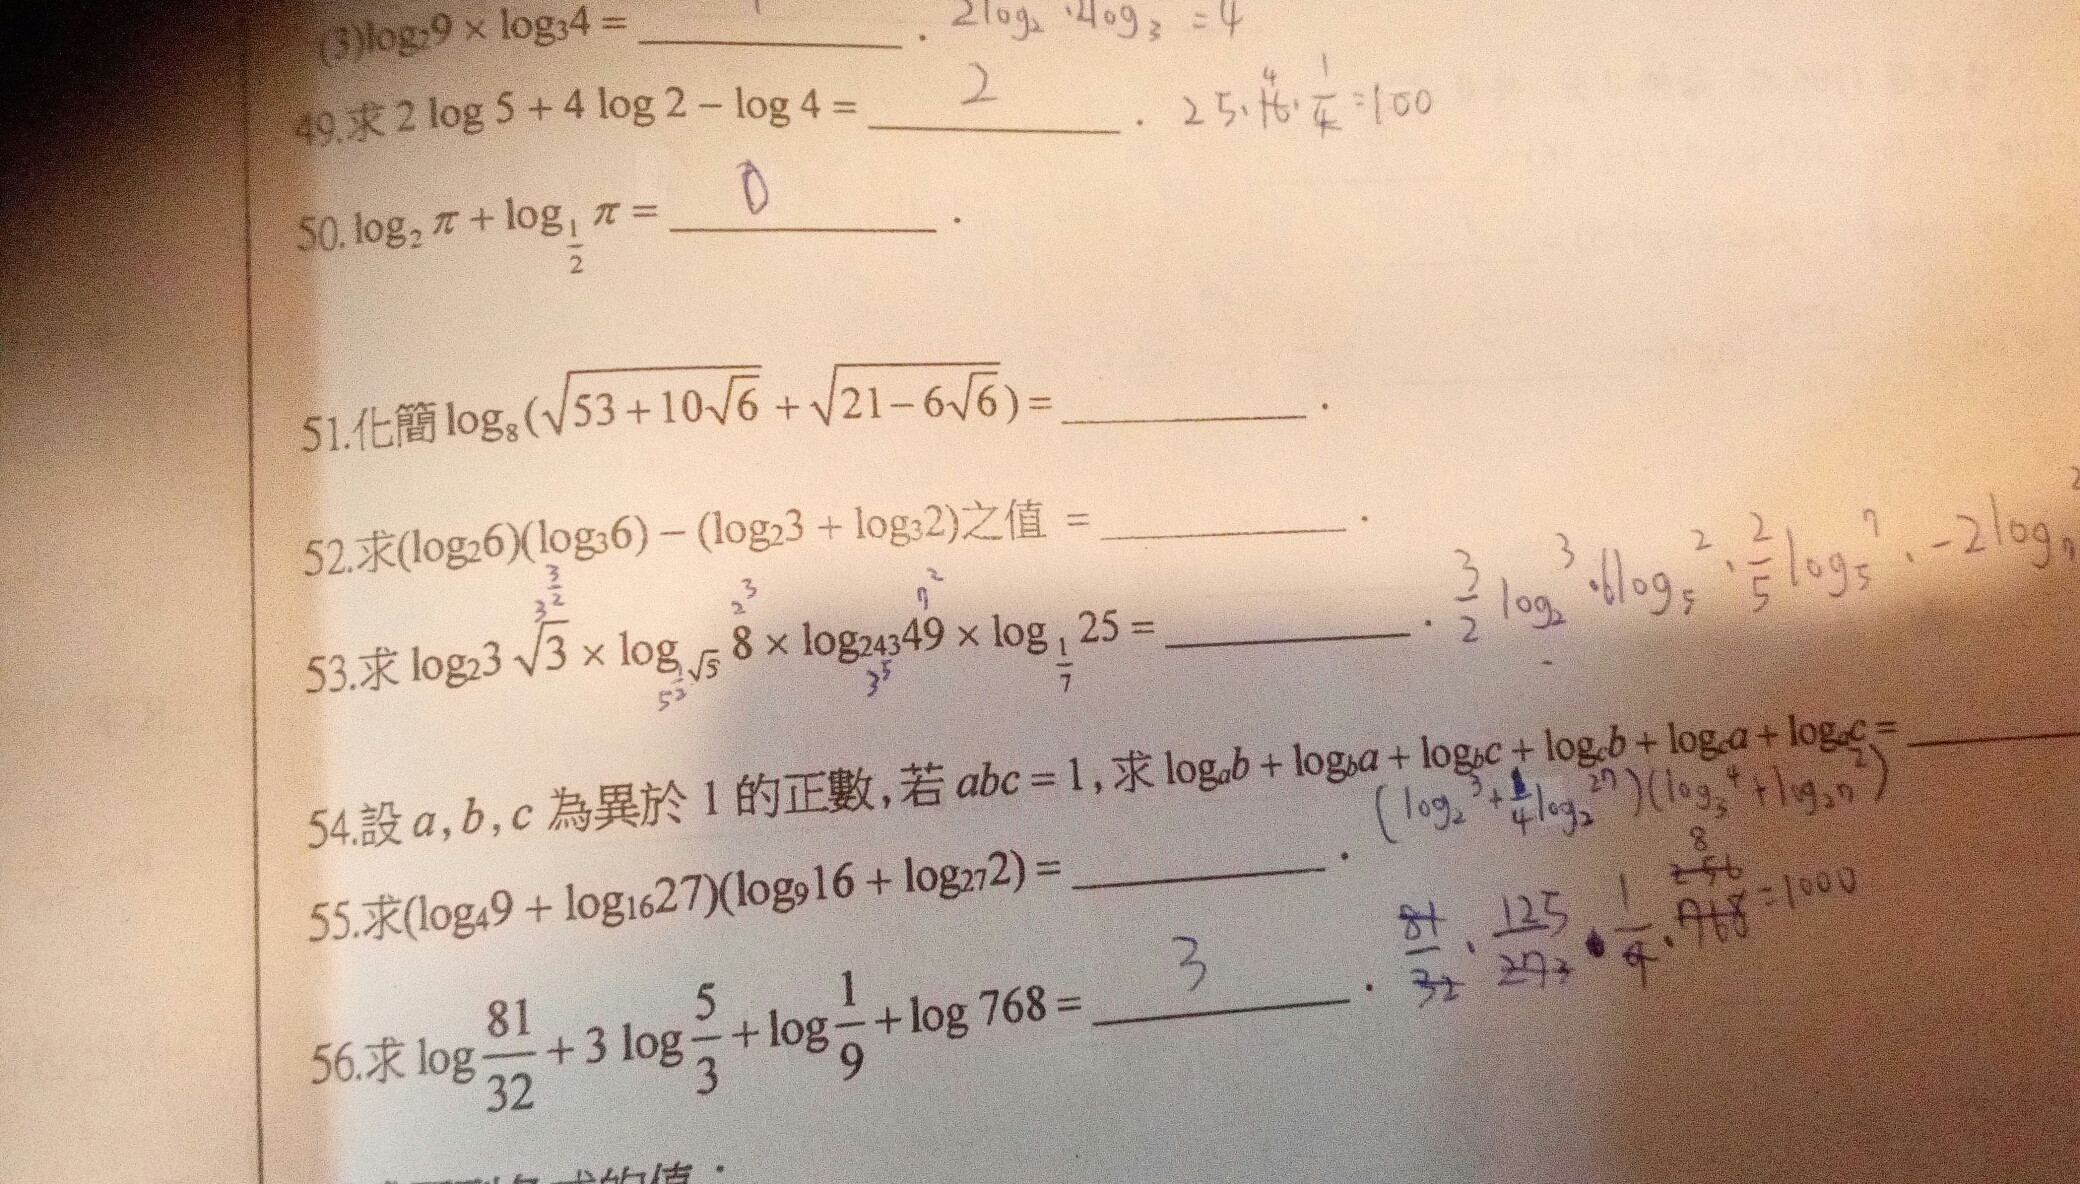 (3)log₂9 × log₃4 = ________ . 2log₂ · 4log₃ = 4
49.求 2 log 5 + 4 log 2 − log 4 = 2 . 25·16·1/4 = 100
4
50. log₂ π + log_{1/2} π = 0 .
51.化簡 log₈(√(53 + 10√6) + √(21 − 6√6)) = ________ .
52.求(log₂6)(log₃6) − (log₂3 + log₃2)之值 = ________ .
3^{3/2} 2³ 7²
53.求 log₂3√3 × log_{√5} 8 × log₂₄₃49 × log_{1/7} 25 = ________ . 3/2 log₂³ · 6log₅² · 2/5 log₅⁷ · −2log₇
5^{1/2} 3⁵
54.設 a, b, c 為異於 1 的正數, 若 abc = 1, 求 log_a b + log_b a + log_b c + log_c b + log_c a + log_a c = ________
(log₂³ + 1/4 log₂²⁷)(log₃⁴ + log₂₇²)
55.求(log₄9 + log₁₆27)(log₉16 + log₂₇2) = ________ .
8
256
81/32 · 125/27 · 1/9 · 768 = 1000
56.求 log 81/32 + 3 log 5/3 + log 1/9 + log 768 = 3 .